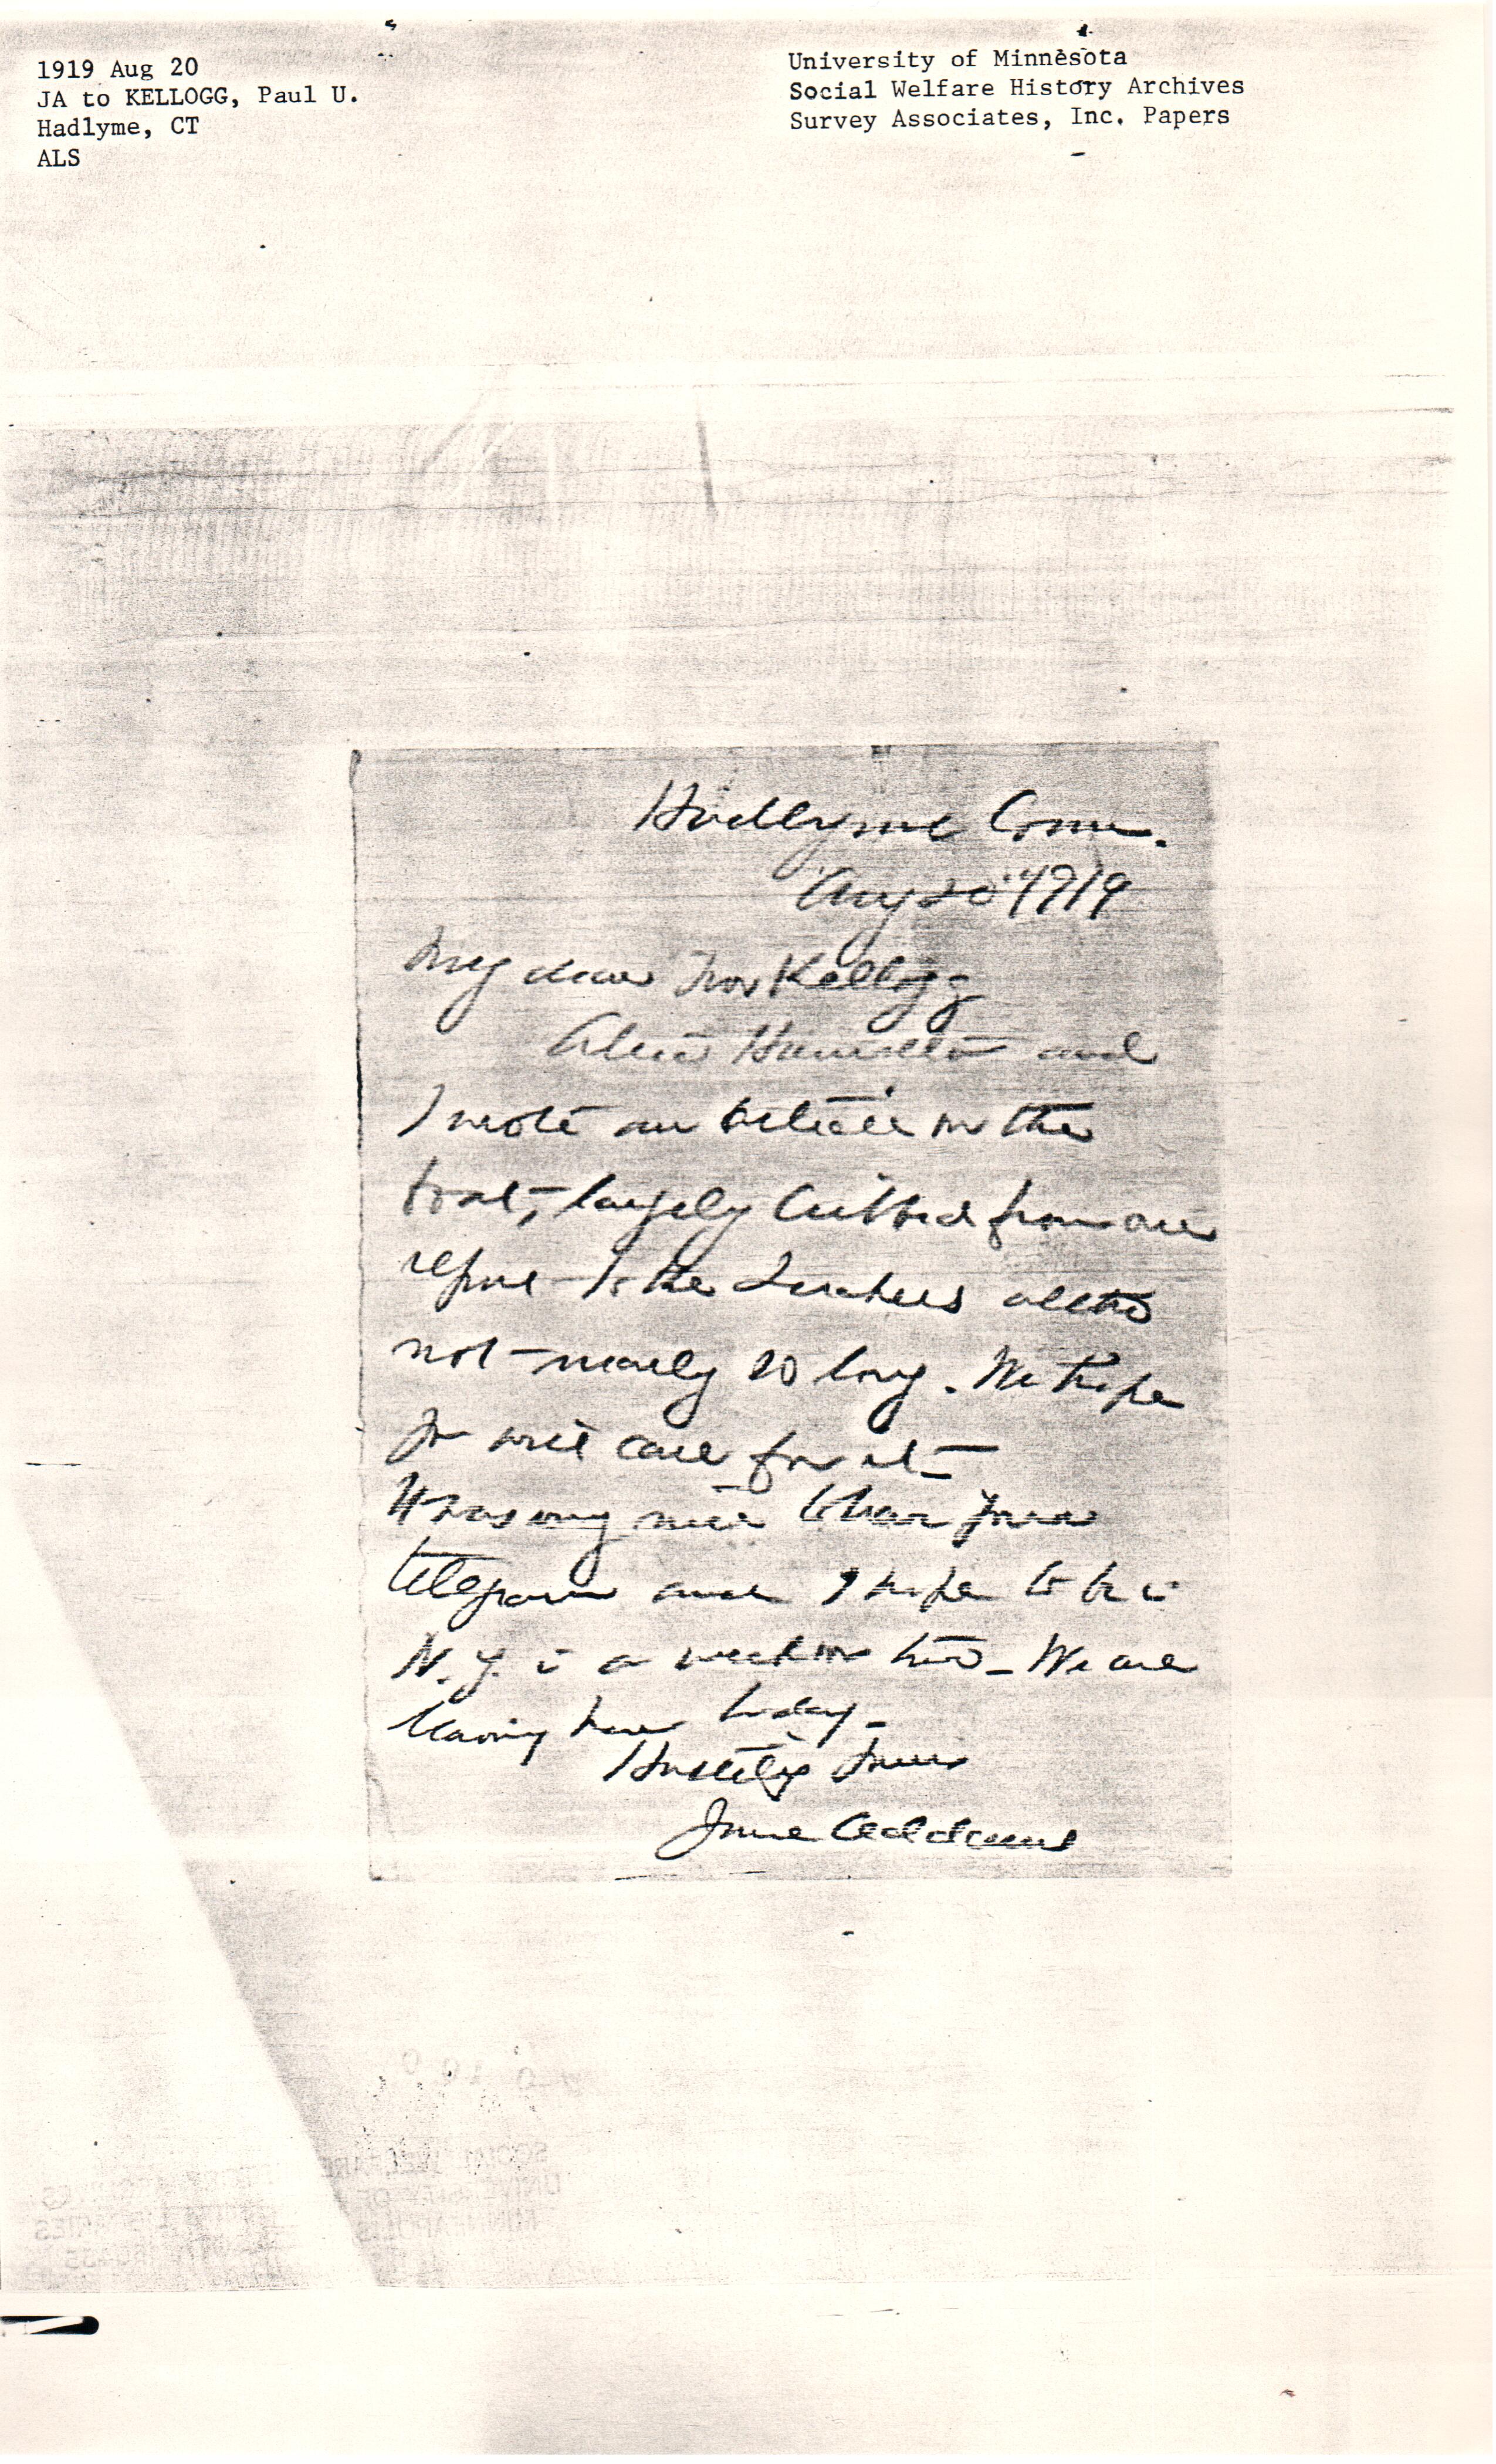 1919 Aug 20
JA to KELLOGG, Paul U.
Hadlyme, CT
ALS
University of Minnesota
Social Welfare History Archives
Survey Associates, Inc. Papers
Hadlyme Conn.
Aug 20" 1919
My dear Mr Kellogg
Alice Hamilton and
I wrote an article on the
boat, largely cribbed from our
report to the Quakers altho
not nearly so long. We hope
you will care for it—
It was very nice to have your
telegram and I hope to be in
N.Y. in a week or two— We are
leaving here today—
Hastily yours
Jane Addams
SOCIAL WELFARE
UNIVERSITY OF
MINNEAPOLIS